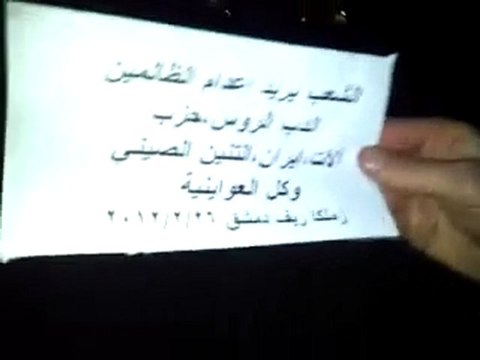 الشعب يريد اعدام الظالمين
الدب الروس،حزب
الات،ايران،التنين الصيني
وكل العواينية
زملكا ريف دمشق ٢٠١٢/٢/٢٦